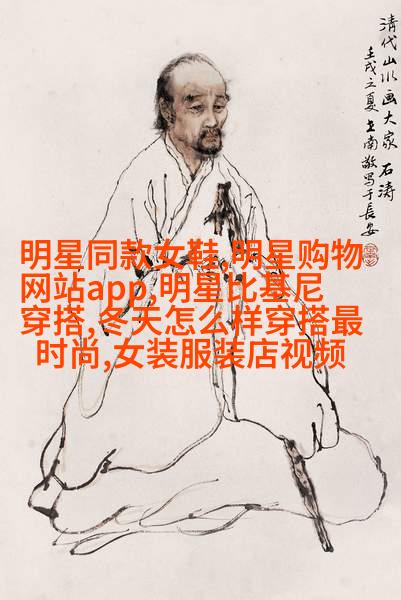 清代山水画大家 石涛
壬戌之夏 王南敬写于长安
明星同款女鞋,明星购物
网站app,明星比基尼
穿搭,冬天怎么样穿搭最
时尚,女装服装店视频